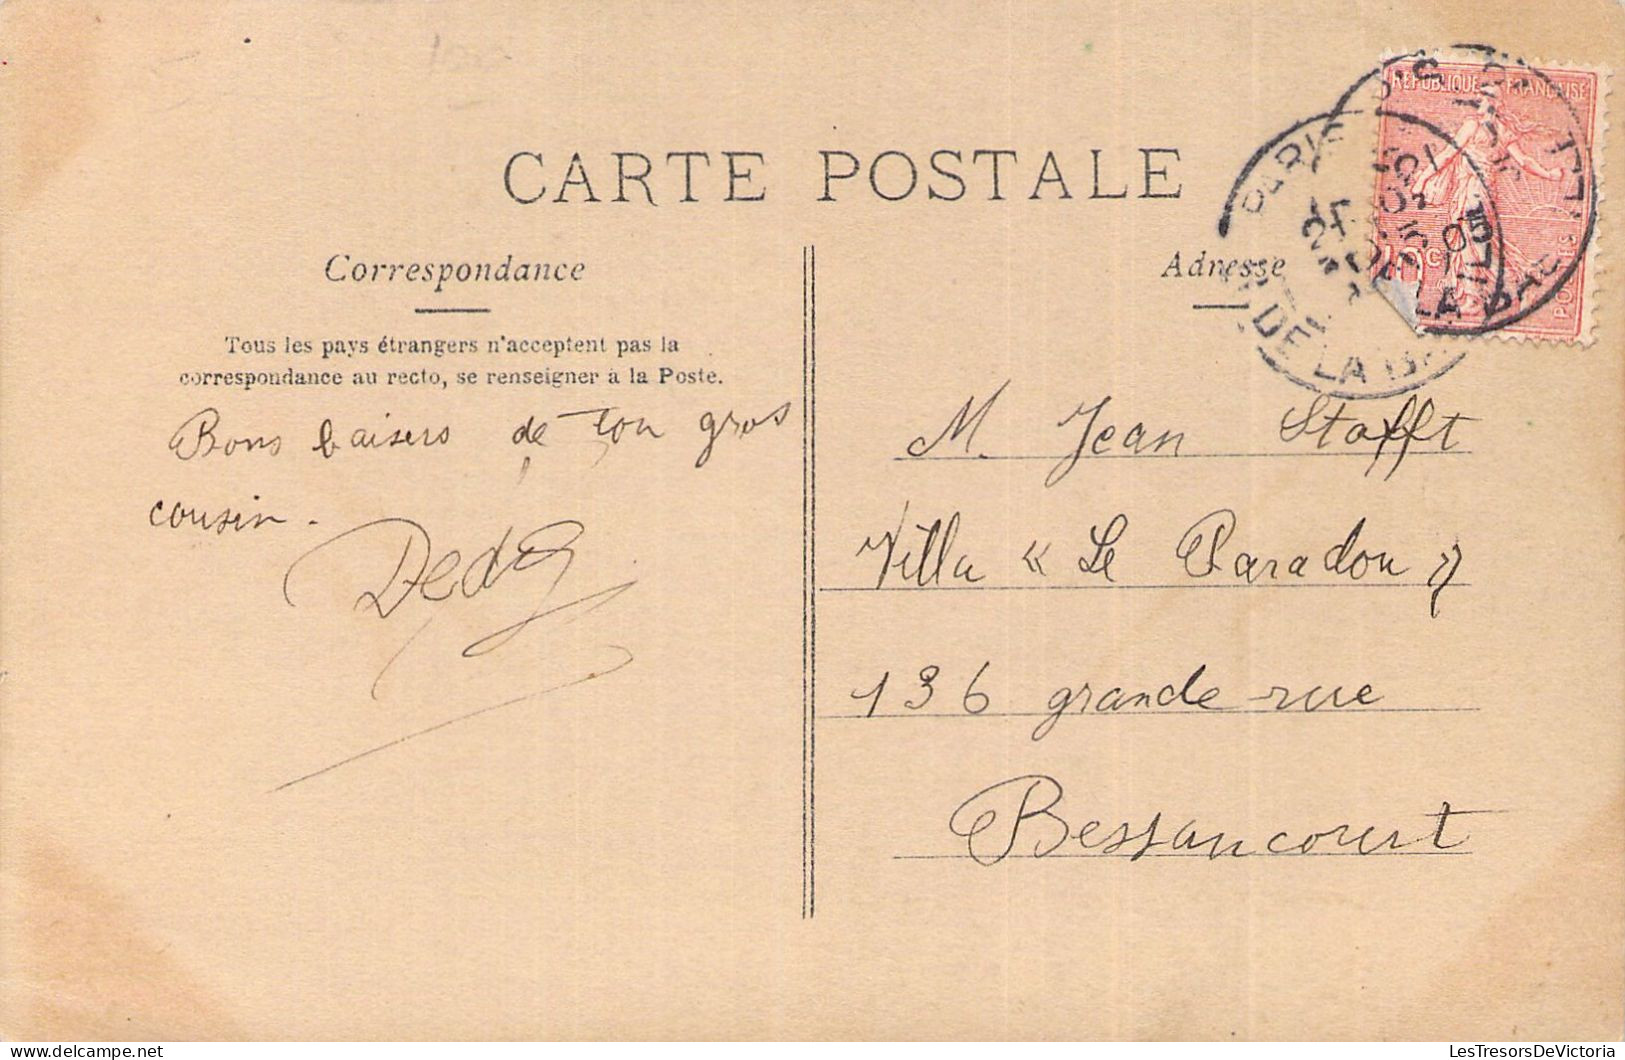 CARTE POSTALE
Correspondance
Tous les pays étrangers n'acceptent pas la
correspondance au recto, se renseigner à la Poste.
Bons baisers de ton gros
cousin.
Dedé
Adresse
REPUBLIQUE FRANÇAISE
10c
POSTES
PARIS
DE LA
M. Jean Stofft
Villa « Le Paradou »
136 grande rue
Bessancourt
LesTresorsDeVictoria